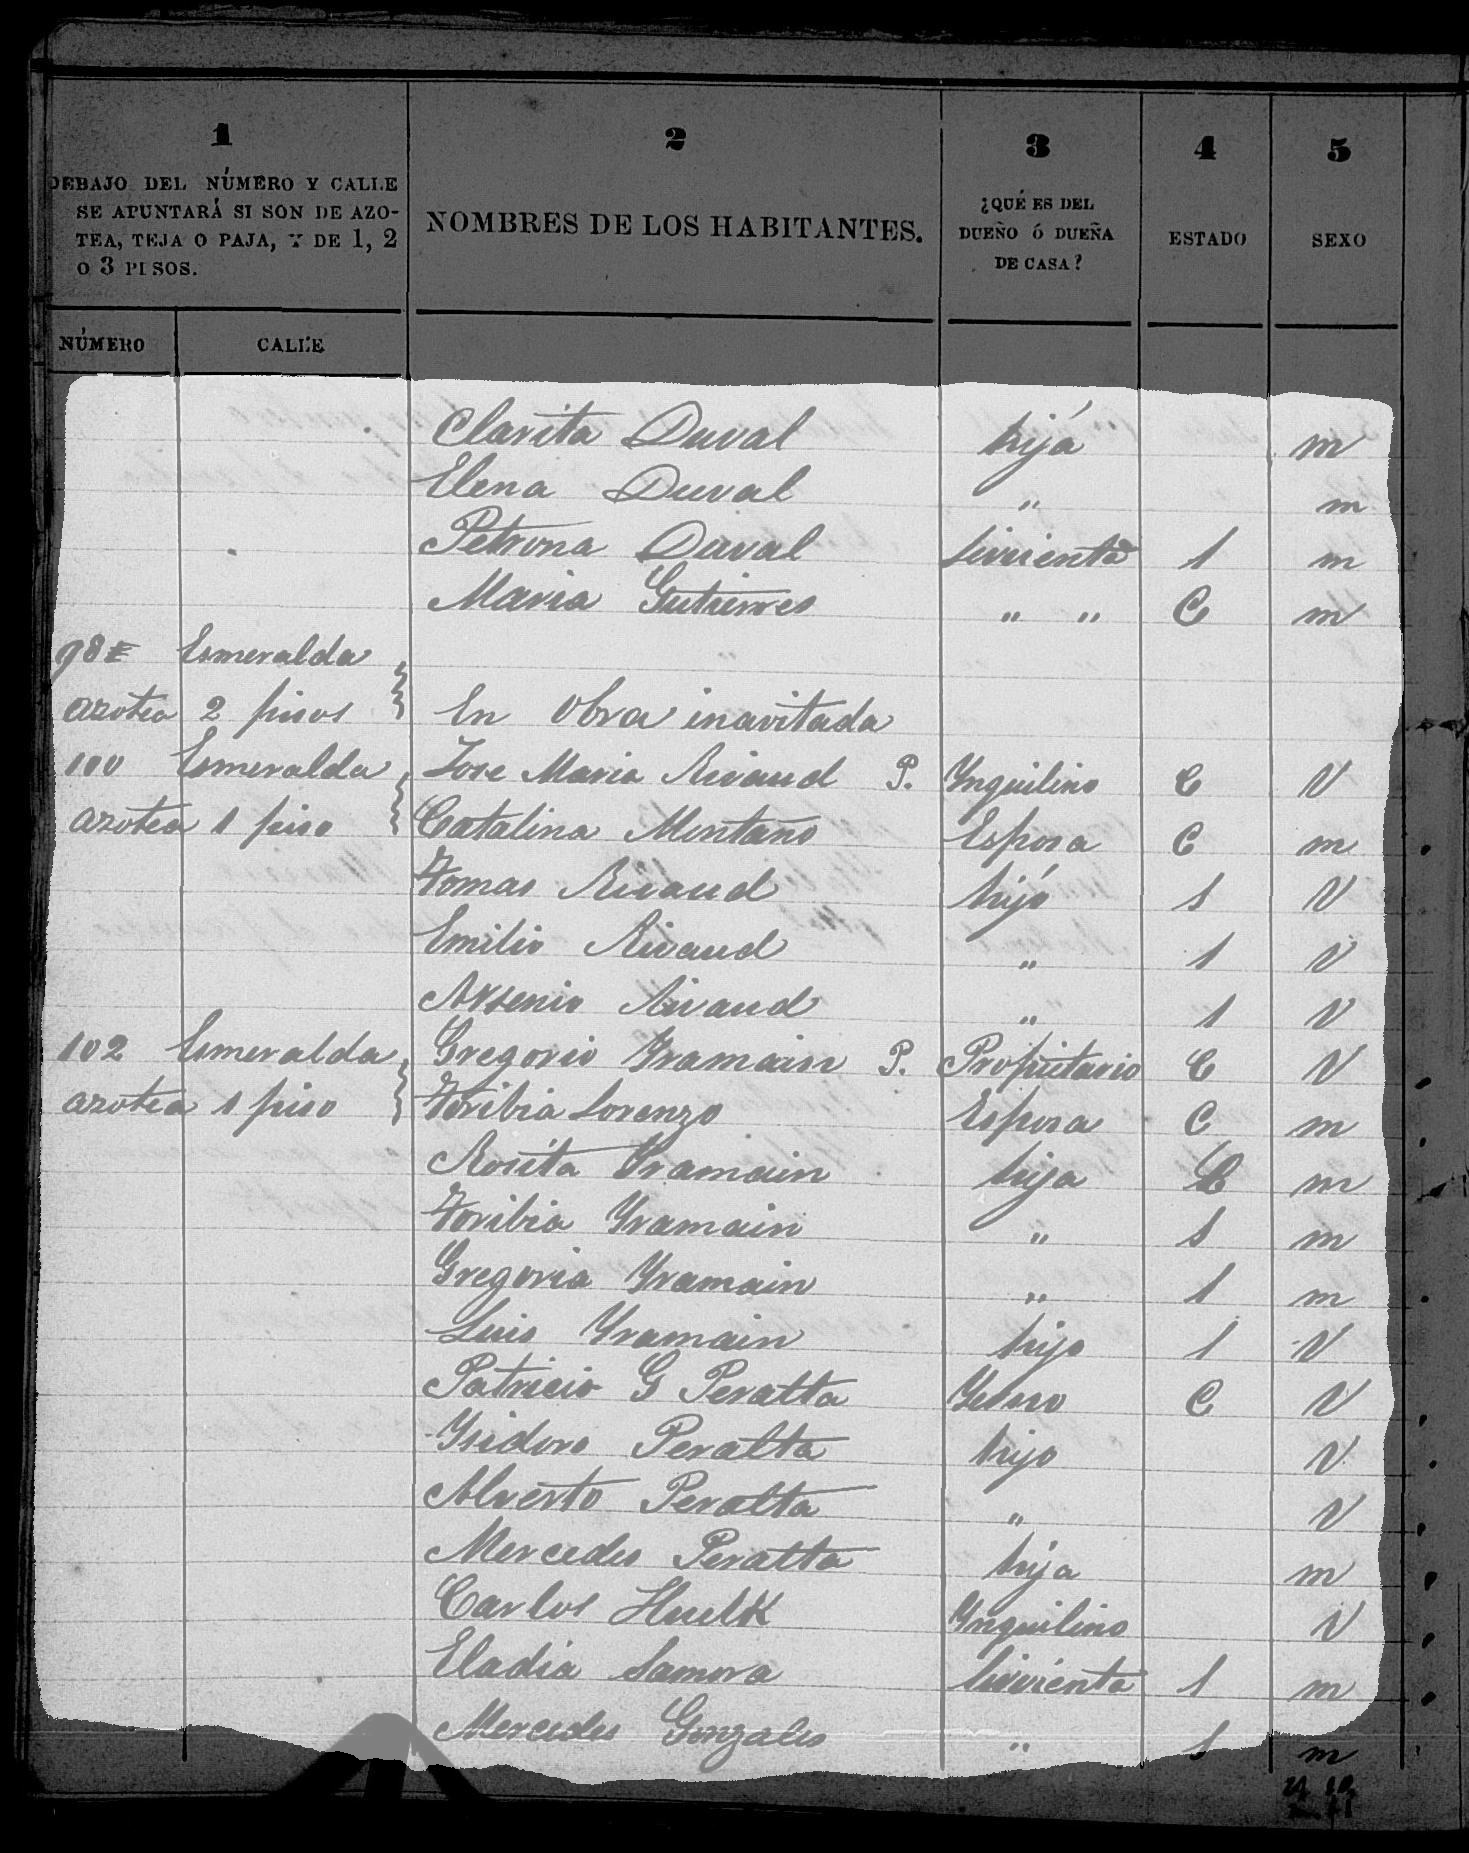 1 2 3 4 5
DEBAJO DEL NÚMERO Y CALLE
SE APUNTARÁ SI SON DE AZO-
TEA, TEJA O PAJA, Y DE 1, 2
O 3 PISOS.
NOMBRES DE LOS HABITANTES.
¿QUÉ ES DEL
DUEÑO Ó DUEÑA
DE CASA?
ESTADO
SEXO
NÚMERO CALLE
Clarita Duval hija m
Elena Duval " m
Petrona Duval sirvienta S m
Maria Gutierres " " C m
98 Esmeralda
azotea 2 pisos En obra inavitada
100 Esmeralda Jose Maria Rivaud P. Ynquilino C V
azotea 1 piso Catalina Montaño Esposa C m
Tomas Rivaud hijo S V
Emilio Rivaud " S V
Arsenio Rivaud " S V
102 Esmeralda Gregorio Yramain P. Propietario C V
azotea 1 piso Toribia Lorenzo Esposa C m
Rosita Yramain hija C m
Toribia Yramain " S m
Gregoria Yramain " S m
Luis Yramain hijo S V
Patricio G Peralta Yerno C V
Ysidoro Peralta hijo V
Alverto Peralta " V
Mercedes Peralta hija m
Carlos Ynquilino V
Eladia Samora sirvienta S m
Mercedes Gonzales " S m